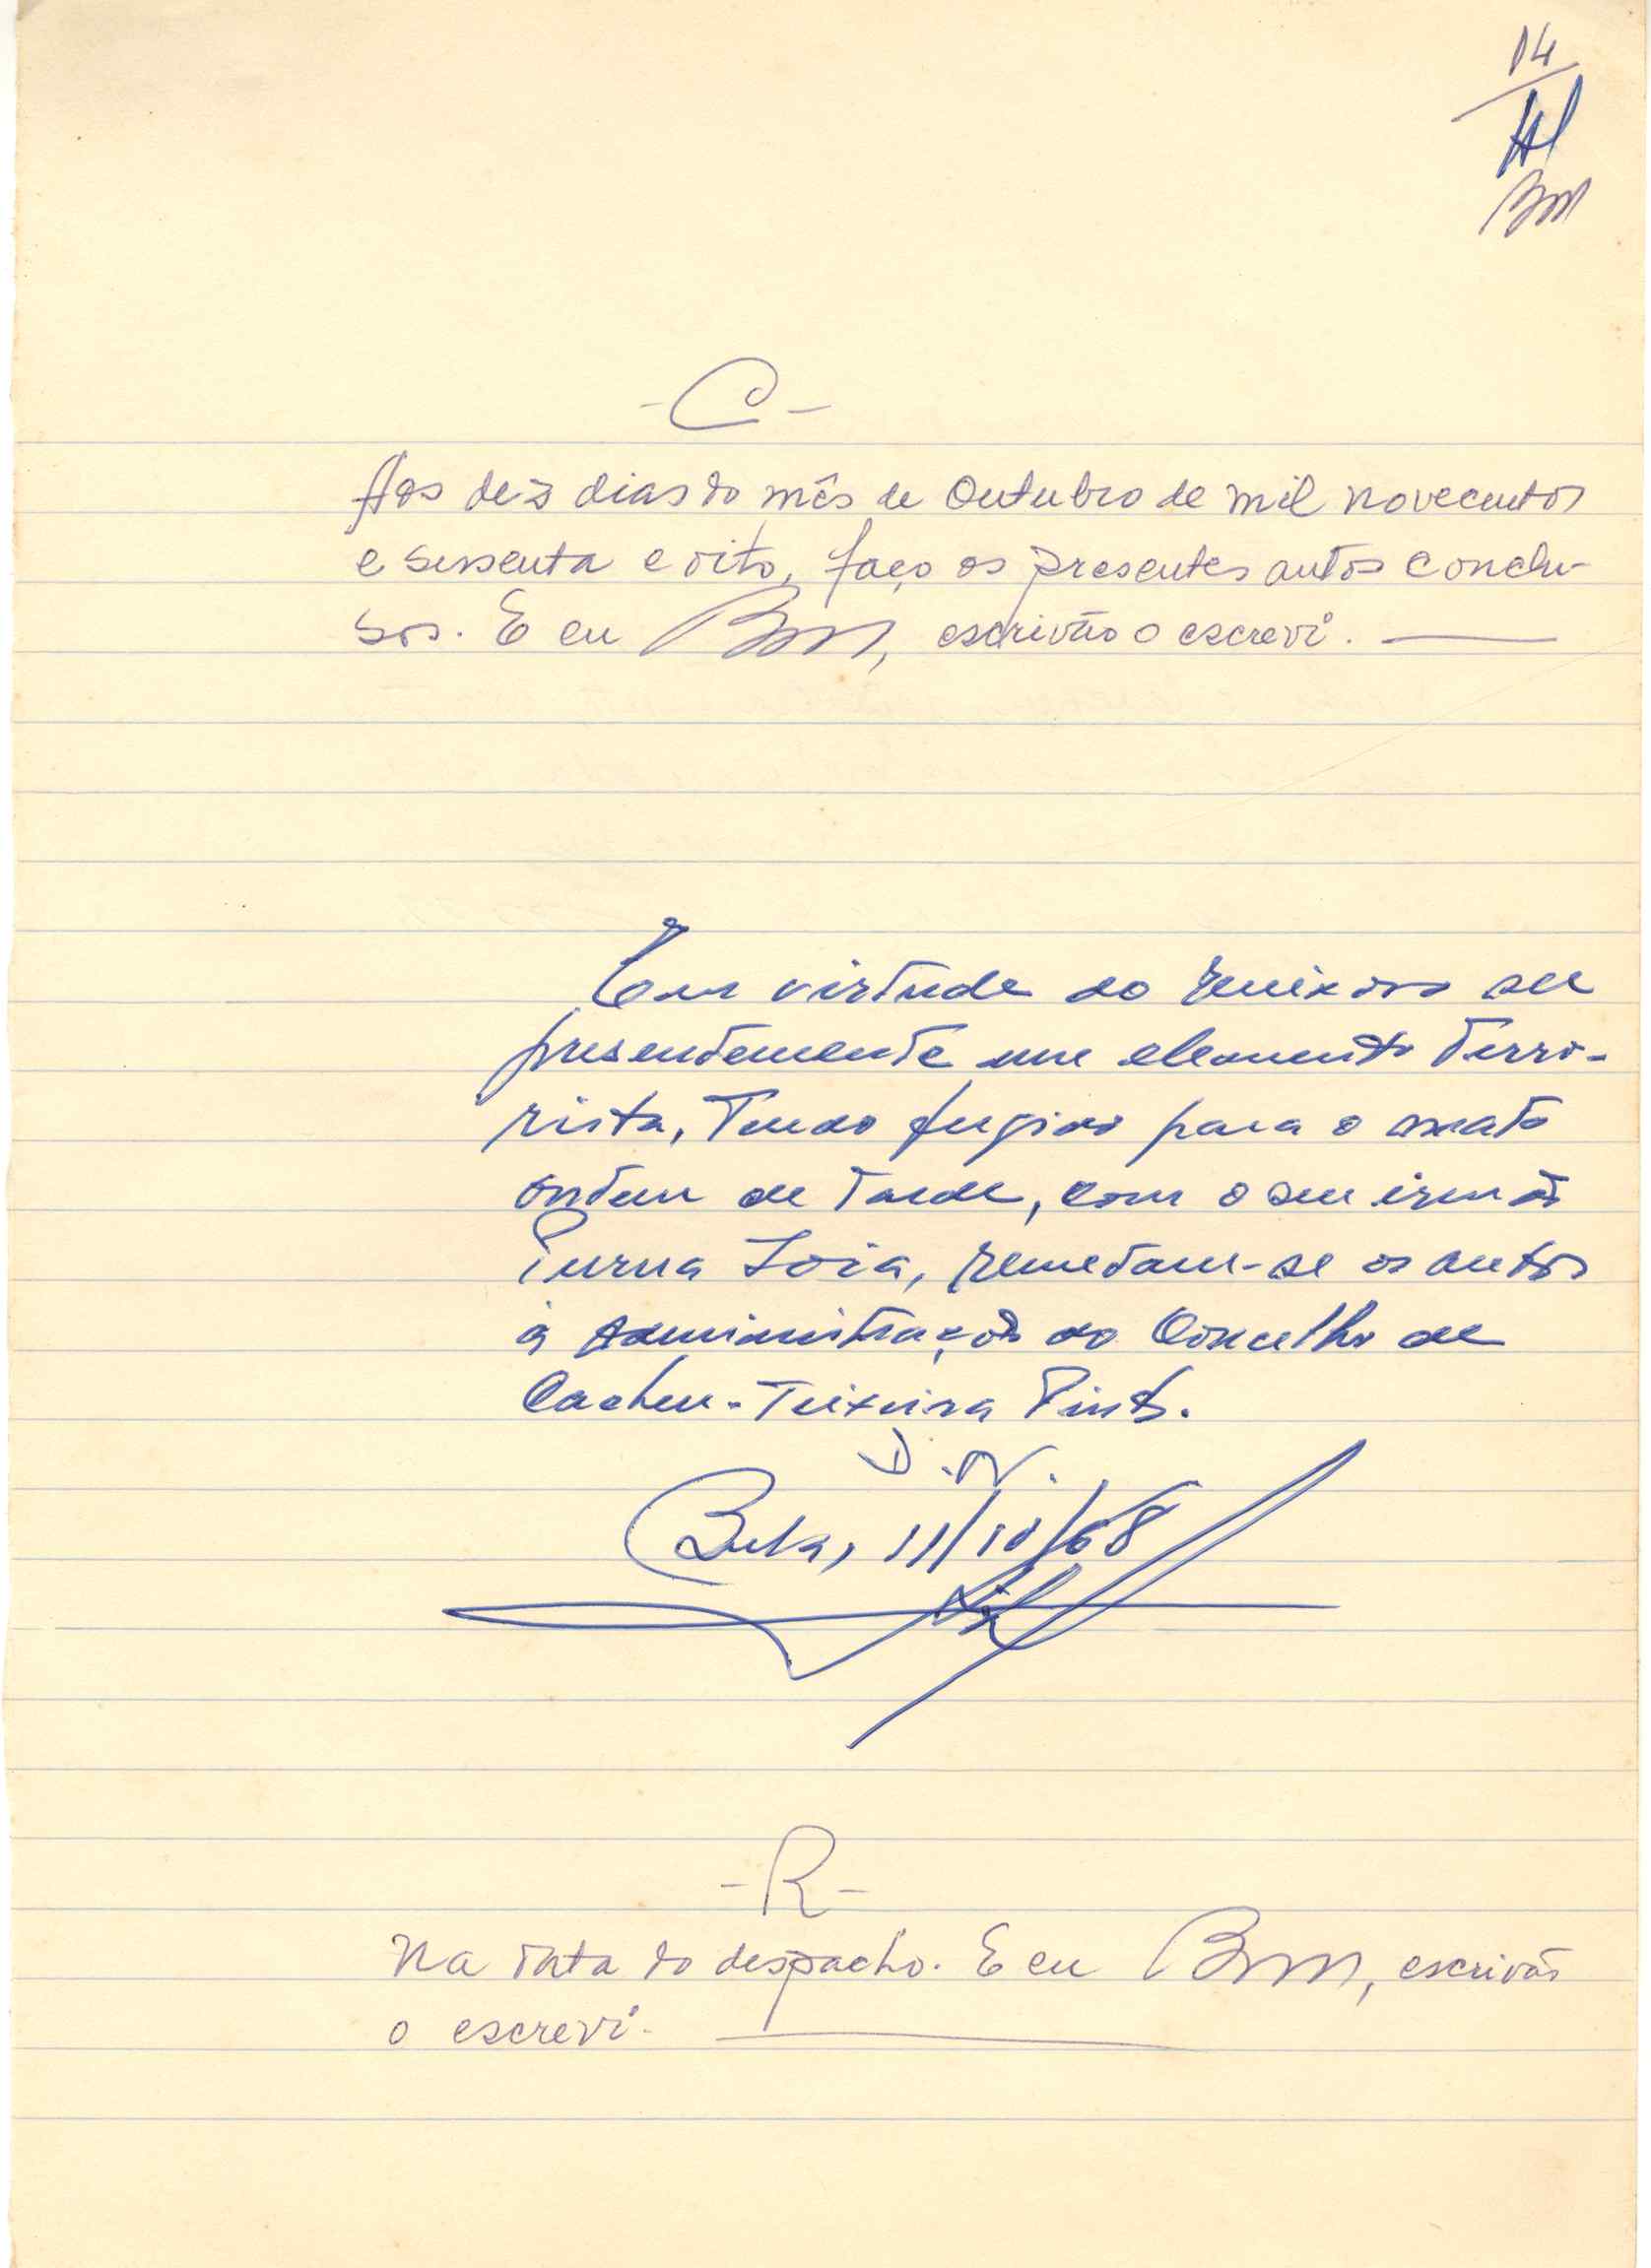 14
- C -
Aos dez dias do mês de Outubro de mil novecentos
e sessenta e oito, faço os presentes autos conclu-
sos. E eu , escrivão o escrevi.
Em virtude do queixoso ser
presentemente um elemento terro-
rista, Tendo fugido para o mato
ontem de tarde, com o seu irmão
Loia, remetam-se os autos
à Administração do Concelho de
Cacheu-Teixeira Pinto.
D.N.
11/10/68
- R -
Na data do despacho. E eu , escrivão
o escrevi.